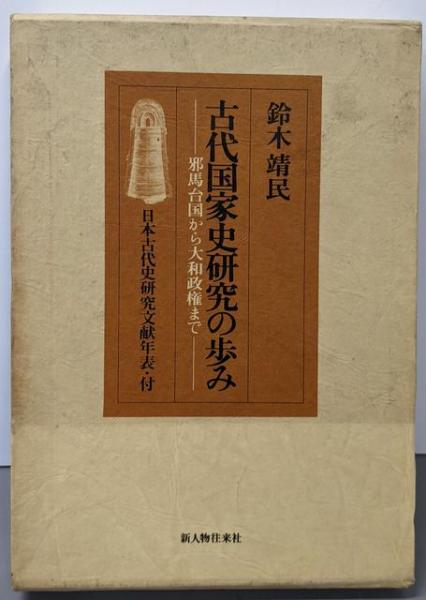 鈴木靖民
古代国家史研究の歩み
邪馬台国から大和政権まで
日本古代史研究文献年表・付
新人物往来社